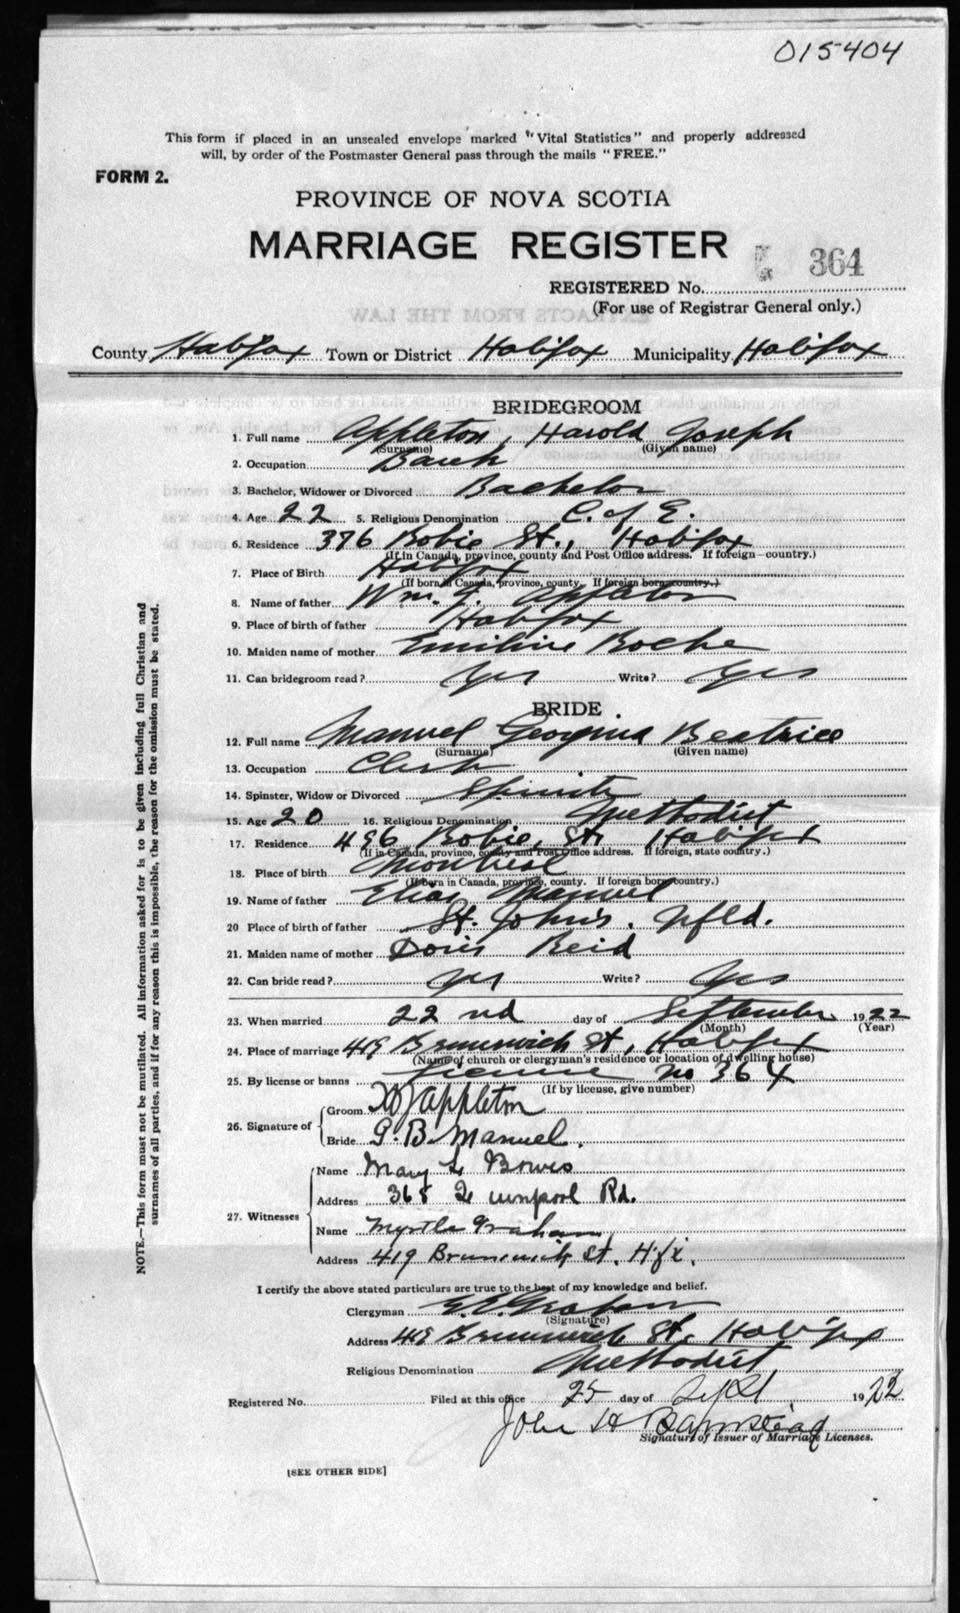 015404
This form if placed in an unsealed envelope marked "Vital Statistics" and properly addressed
will, by order of the Postmaster General pass through the mails "FREE."
FORM 2.
PROVINCE OF NOVA SCOTIA
MARRIAGE REGISTER
364
REGISTERED No.
(For use of Registrar General only.)
EXTRACTS FROM THE LAW
County Halifax Town or District Halifax Municipality Halifax
BRIDEGROOM
1. Full name Appleton, Harold Joseph
(Surname) (Given name)
2. Occupation Bank
3. Bachelor, Widower or Divorced Bachelor
4. Age 22 5. Religious Denomination C. of E.
6. Residence 376 Robie St., Halifax
(If in Canada, province, county and Post Office address. If foreign country.)
7. Place of Birth Halifax
(If born in Canada, province, county. If foreign born country.)
8. Name of father Wm. J. Appleton
9. Place of birth of father Halifax
10. Maiden name of mother Roche
11. Can bridegroom read? Yes Write? Yes
BRIDE
12. Full name Manuel Georgina Beatrice
(Surname) (Given name)
13. Occupation Clerk
14. Spinster, Widow or Divorced Spinster
15. Age 20 16. Religious Denomination Methodist
17. Residence 496 Robie, St. Halifax
(If in Canada, province, county and Post Office address. If foreign, state country.)
18. Place of birth Montreal
(If born in Canada, province, county. If foreign born country.)
19. Name of father Elias Manuel
20 Place of birth of father St. John's, Nfld.
21. Maiden name of mother Doris Reid
22. Can bride read? Yes Write? Yes
23. When married 22nd day of September 1922
(Month) (Year)
24. Place of marriage 419 Brunswick St, Halifax
(Name of church or clergyman's residence or location of dwelling house)
25. By license or banns License no 364
(If by license, give number)
26. Signature of Groom HJ Appleton
Bride G. B. Manuel.
27. Witnesses Name Mary L Bowes
Address 365 Rd.
Name Myrtle Graham
Address 419 Brunswick St. Hfx.
I certify the above stated particulars are true to the best of my knowledge and belief.
Clergyman E. E. Graham
(Signature)
Address 419 Brunswick St. Halifax
Religious Denomination Methodist
Registered No. Filed at this office 25 day of Sept 1922
John H Barnstead
Signature of Issuer of Marriage Licenses.
[SEE OTHER SIDE]
NOTE.—This form must not be mutilated. All information asked for is to be given including full Christian and
surnames of all parties, and if for any reason this is impossible, the reason for the omission must be stated.